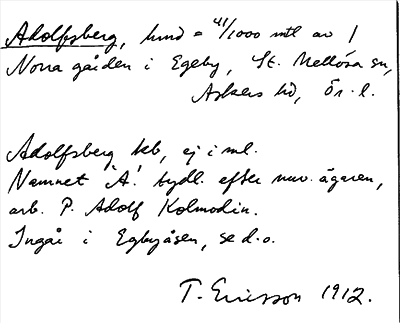 Adolfsberg, hmd = 41/1000 mtl av 1
Norra gården i Egeby, St. Mellösa sn,
Askers hd, Ör. l.
Adolfsberg kb, ej i ml.
Namnet "A." tydl. efter nuv. ägaren,
arb. P. Adolf Kolmodin.
Ingår i Egbyåsen, se d.o.
T. Ericsson 1912.